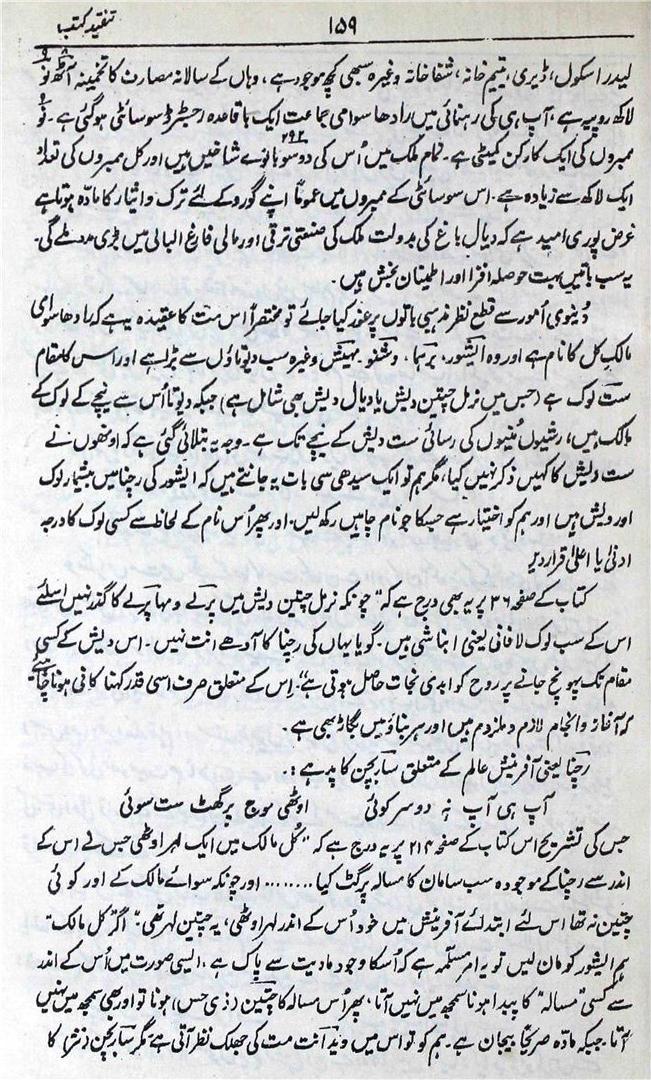 ۱۵۹
تنقید کتب
لیدر اسکول، ڈیری، یتیم خانہ، شفاخانہ وغیرہ سبھی کچھ موجود ہے، وہاں کے سالانہ مصارف کا تخمینہ آٹھ نو
لاکھ روپیہ ہے، آپ ہی کی رہنمائی میں رادھا سوامی جماعت ایک باقاعدہ رجسٹرڈ سوسائٹی ہو گئی ہے۔ نو
ممبروں کی ایک کارکن کمیٹی ہے۔ تمام ملک میں اُس کی دو سو بانوے ۲۹۲ شاخیں ہیں اور کل ممبروں کی تعداد
ایک لاکھ سے زیادہ ہے۔ اس سوسائٹی کے ممبروں میں عموماً اپنے گورو کے لئے ترک و ایثار کا مادّہ ہوتا ہے
غرض پوری امید ہے کہ دیال باغ کی بدولت ملک کی صنعتی ترقی اور مالی فارغ البالی میں بڑی مدد ملے گی۔
یہ سب باتیں بہت حوصلہ افزا اور اطمینان بخش ہیں۔
دُنیوی اُمور سے قطع نظر مذہبی باتوں پر غور کیا جائے تو مختصراً اُس مت کا عقیدہ یہ ہے کہ رادھا سوامی
مالک کل کا نام ہے اور وہ ایشور، برہما، وشنو، مہیش وغیرہ سب دیوتاؤں سے بڑا ہے اور اس کا مقام
ست لوک ہے (جس میں نرمل چیتن دیش یا دیال دیش بھی شامل ہے) جبکہ دیوتا اُس سے نیچے کے لوک کے
مالک ہیں، رشیوں مُنیوں کی رسائی ست دیش کے نیچے تک ہے۔ وجہ یہ بتلائی گئی ہے کہ اونھوں نے
ست دیش کا کہیں ذکر نہیں کیا، مگر ہم تو ایک سیدھی سی بات یہ جانتے ہیں کہ ایشور کی رچنا میں بیشمار لوک
اور دیش ہیں اور ہم کو اختیار ہے جسکا جو نام چاہیں رکھ لیں۔ اور پھر اُس نام کے لحاظ سے کسی لوک کا درجہ
ادنیٰ یا اعلیٰ قرار دیں
کتاب کے صفحہ ۳۶ پر یہ بھی درج ہے کہ "چونکہ نرمل چیتن دیش میں پرلے و مہا پرلے کا گذر نہیں اسلئے
اس کے سب لوک لافانی یعنی ابناشی ہیں۔ گویا یہاں کی رچنا کا آد ہے انت نہیں۔ اس دیش کے کسی
مقام تک پہونچ جانے پر روح کو ابدی نجات حاصل ہوتی ہے"۔ اِس کے متعلق صرف اسی قدر کہنا کافی ہونا چاہئے
کہ آغاز و انجام لازم و ملزوم ہیں اور ہر بناؤ میں بگاڑ بھی ہے۔
رچنا یعنی آفرینش عالم کے متعلق سار بچن کا پد ہے :۔
آپ ہی آپ نہ دوسر کوئی اوٹھی موج پرگھٹ ست سوئی
جس کی تشریح اس کتاب کے صفحہ ۲۱۴ پر یہ درج ہے کہ "کُل مالک میں ایک لہر اوٹھی جس نے اس کے
اندر سے رچنا کے موجودہ سب سامان کا مسالہ پرگٹ کیا ........ اور چونکہ سوائے مالک کے اور کوئی
چیتن نہ تھا اس لئے ابتدائے آفرینش میں خود اُس کے اندر لہر اوٹھی، یہ چیتن لہر تھی۔" اگر "کُل مالک"
ہم ایشور کو مان لیں تو یہ امر مسلمہ ہے کہ اُسکا وجود مادیت سے پاک ہے، ایسی صورت میں اُس کے اندر
سے کسی "مسالہ" کا پیدا ہونا سمجھ میں نہیں آتا، پھر اُس مسالہ کا چیتن (ذی حس) ہونا تو اور بھی سمجھ میں نہیں
آتا۔ جبکہ مادّہ صریحاً بیجان ہے۔ ہم کو تو اس میں ویدانت مت کی جھلک نظر آتی ہے مگر سار بچن (نثر) کا